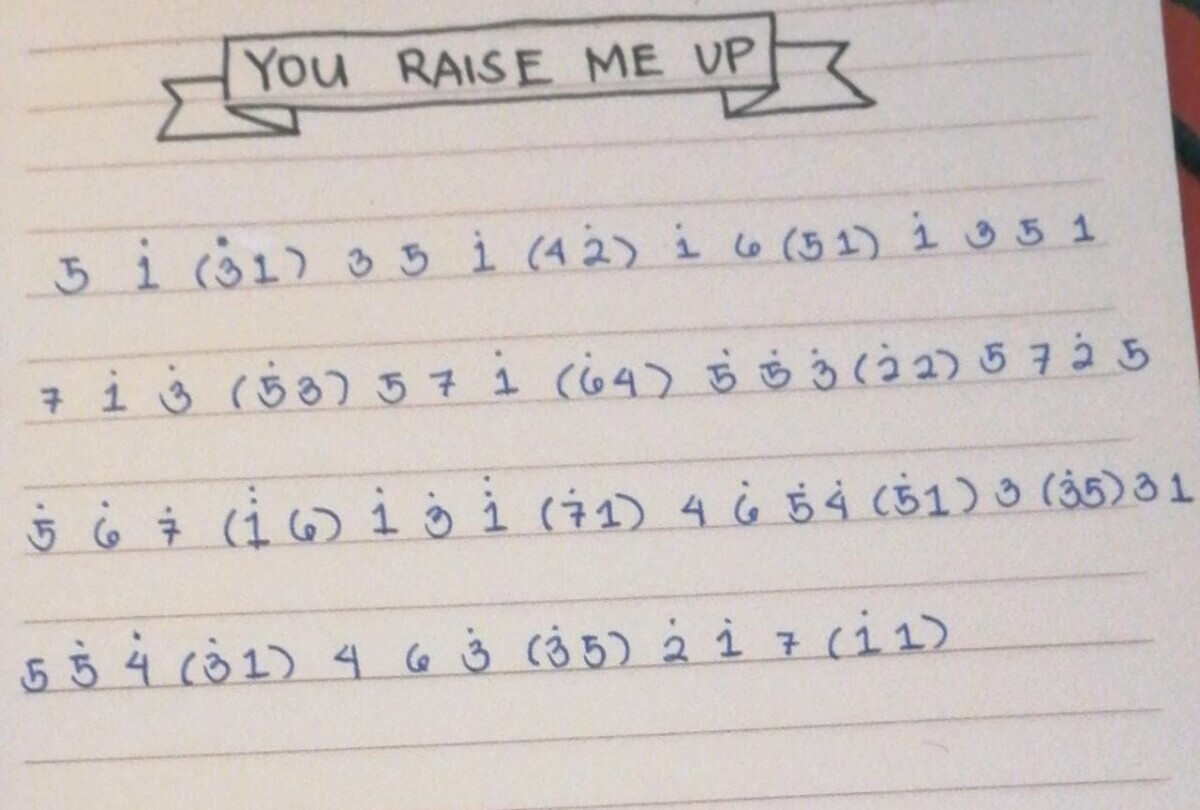 YOU RAISE ME UP
5 1̇ (3̇1) 3 5 1̇ (4 2̇) 1̇ 6 (51) 1̇ 3 5 1
7 1̇ 3̇ (5̇3) 5 7 1̇ (6̇4) 5̇ 5̇ 3̇ (2̇2) 5 7 2̇ 5
5̇ 6̇ 7̇ (1̈ 6) 1̇ 3̇ 1̈ (7̇1) 4 6̇ 5̇ 4̇ (5̇1) 3 (3̇5) 3 1
5 5̇ 4̇ (3̇1) 4 6 3̇ (3̇5) 2̇ 1̇ 7 (1̇ 1)